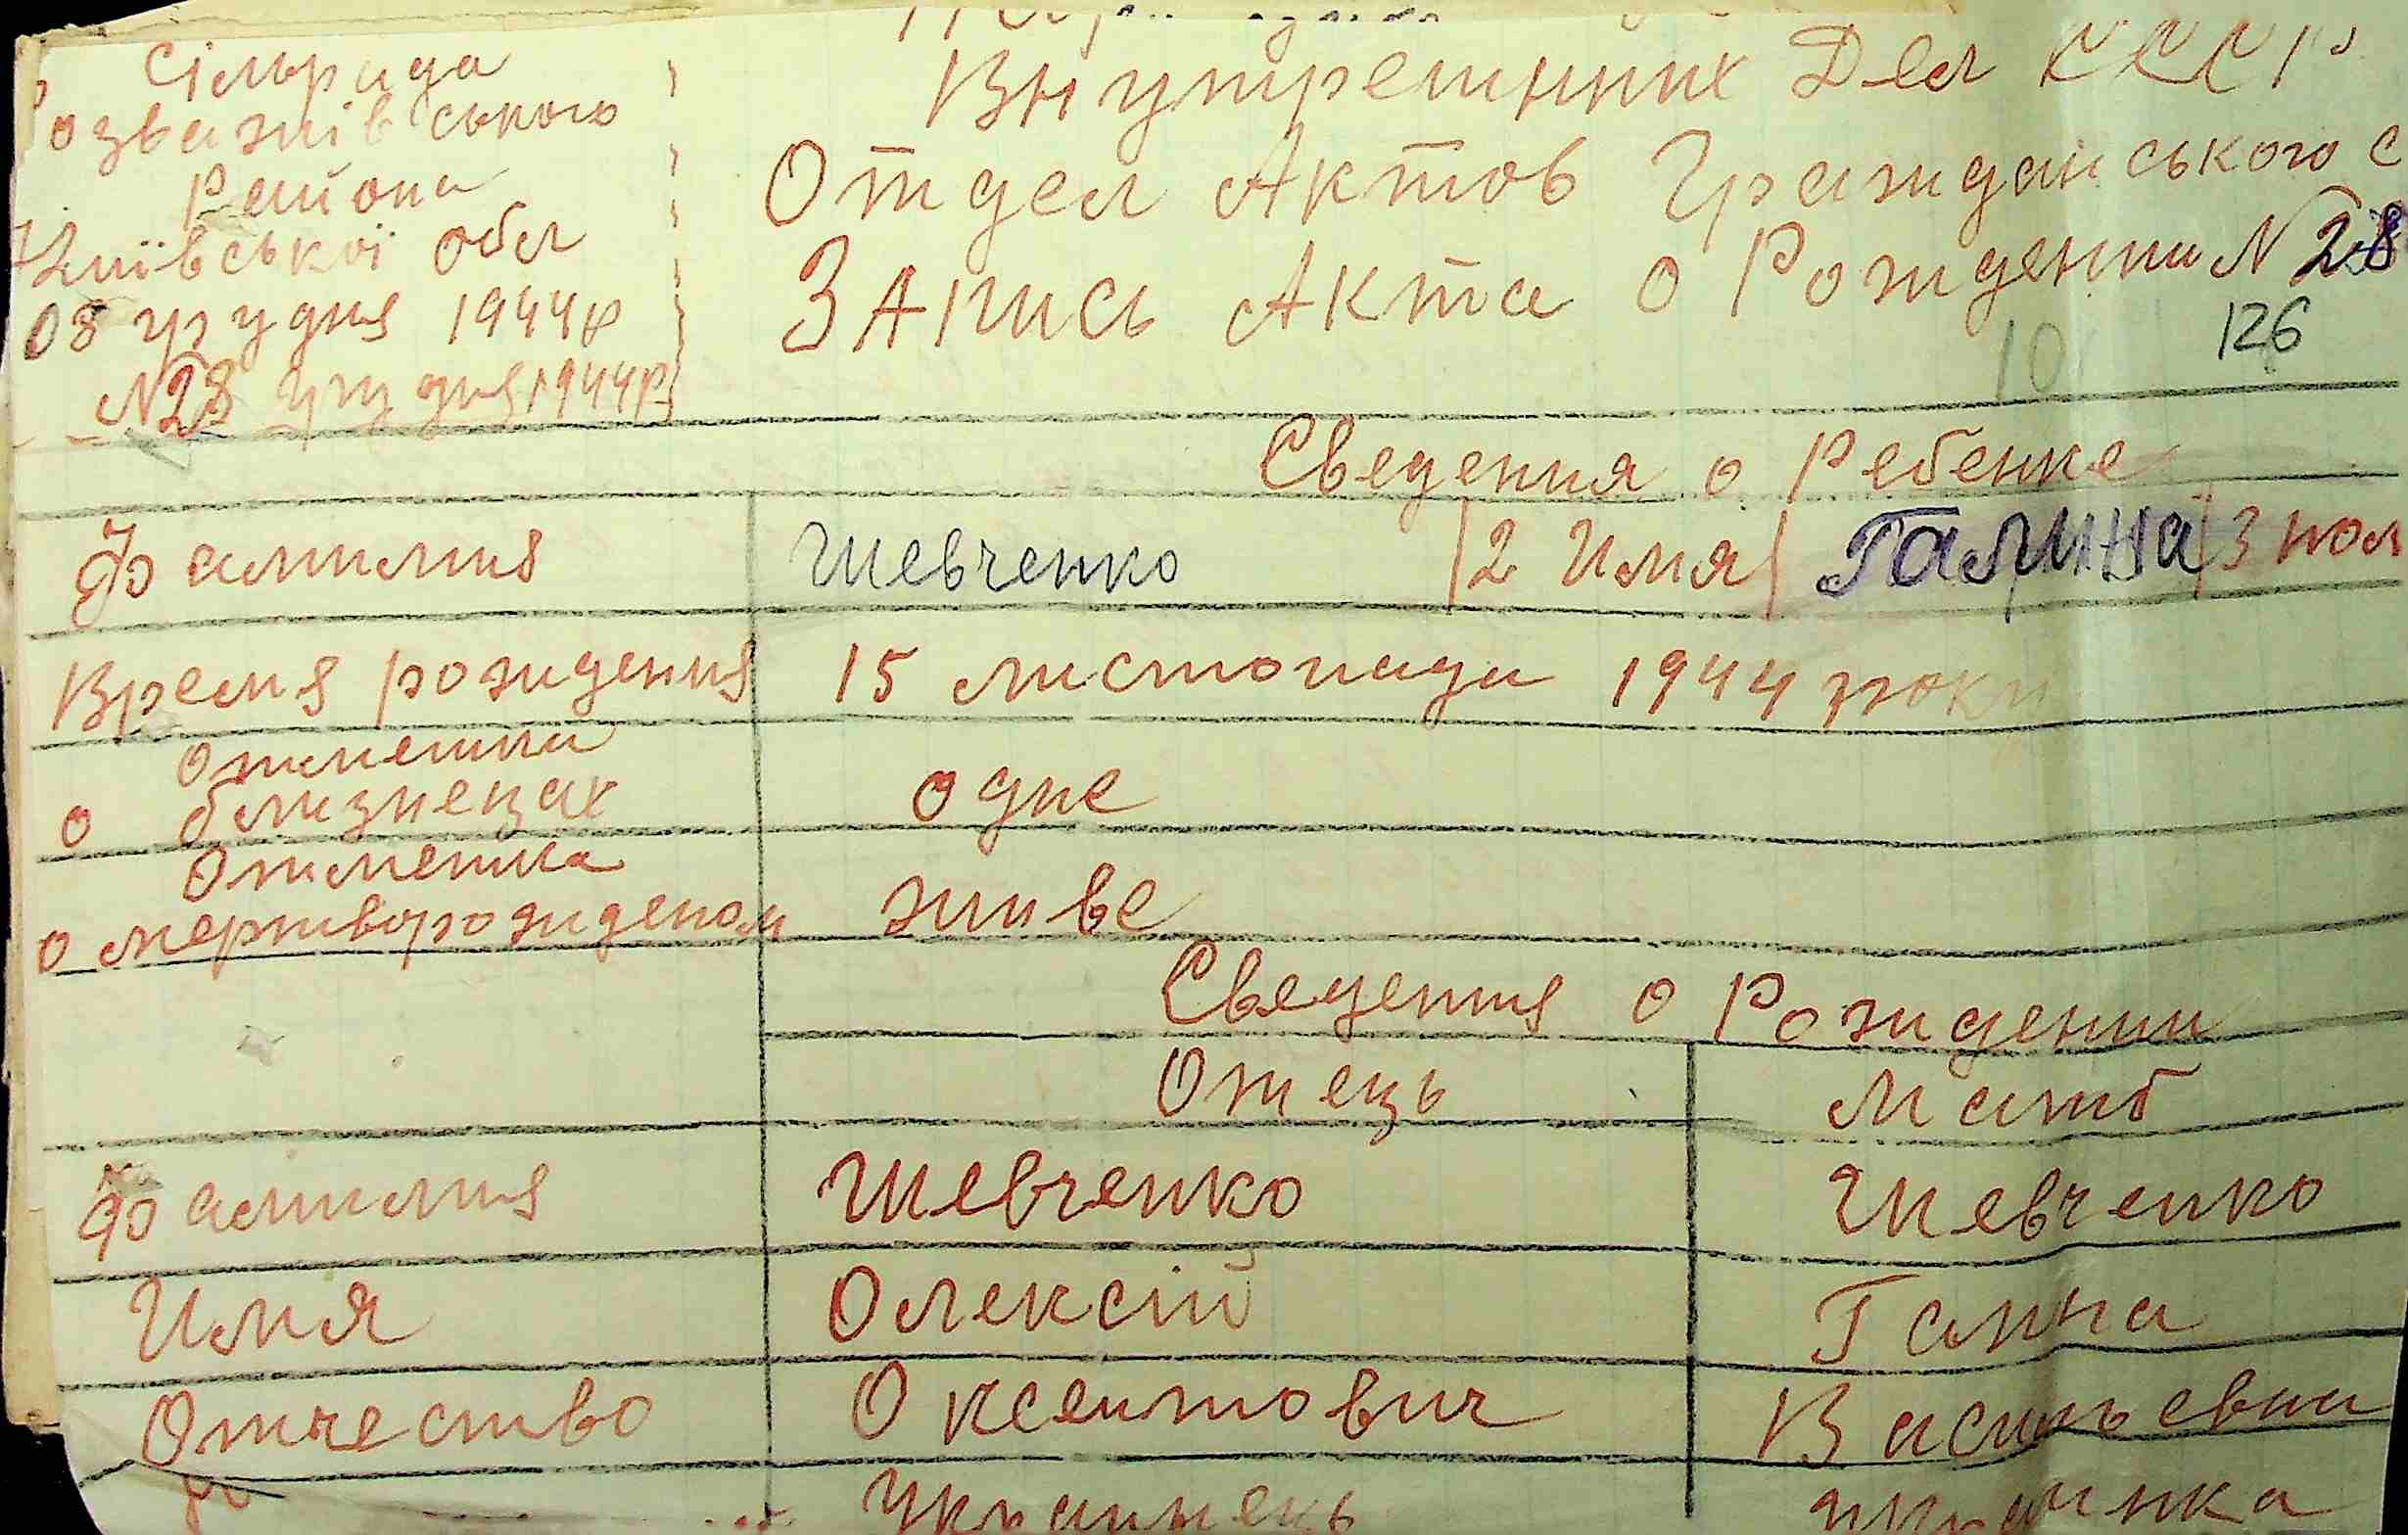 Сільрада
озважівського
Району
Київської обл
08 грудня 1944р
№28 грудня 1944р
Внутрешних Дел СССР
Отдел Актов Гражданського с
ЗАпись Акта о Рождении № 28
10 126
Сведения о Ребенке
Фамилия Шевченко 2 Имя Галина 3 пол
Время рождения 15 листопада 1944 року
Отметка
о близнецах одне
Отметка
о мертворожденом живе
Сведения о Рождении
Отець Матб
Фамилия Шевченко Шевченко
Имя Олексій Ганна
Отчество Оксентович Васильевна
Українець українка